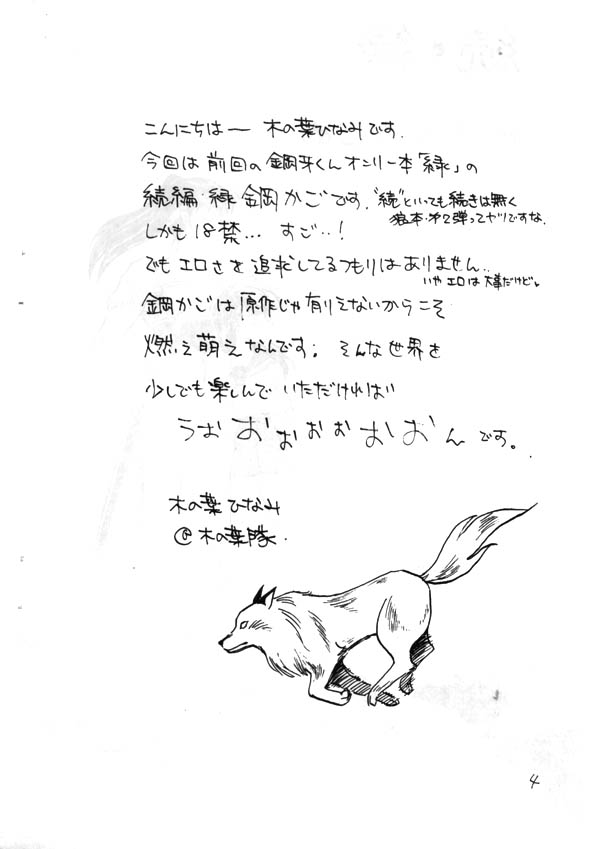 こんにちはー 木の葉ひなみです.
今回は前回の鋼牙くんオンリー本「緑」の
続編・緑 鋼かごです. "続"といっても続きは無く
狼本・第2弾ってヤツですな.
しかも18禁… すご…!
でもエロさを追求してるつもりはありません..
いやエロは大事だけど。
鋼かごは原作じゃ有りえないからこそ
燃え萌えなんです。 そんな世界を
少しでも楽しんでいただければ
うおおおおおおおんです。
木の葉ひなみ
@木の葉隊.
4